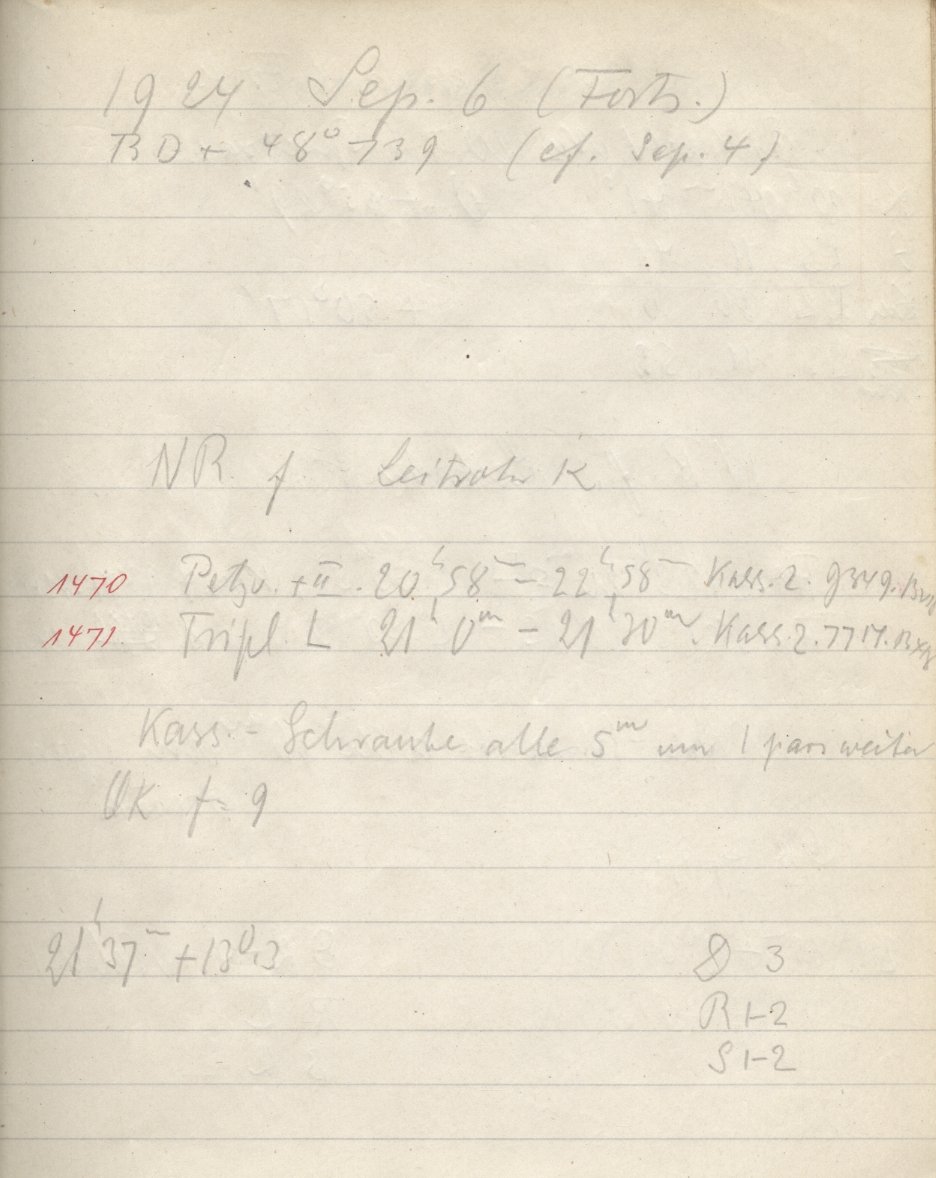 1924 Sep. 6 (Forts.)
BD + 48° 739 (cf. Sep. 4)
NR f Leitrohr K
1470 Petzv. + II. 20ʰ 58ᵐ – 22ʰ 58ᵐ Kass. 2.
1471 Tripl. L 21ʰ 0ᵐ – 21ʰ 30ᵐ. Kass. 2.
Kass. - Schraube alle 5ᵐ um 1 pars weiter
OK f = 9
21ʰ 37ᵐ + 13°.3
D 3
R 1-2
S 1-2